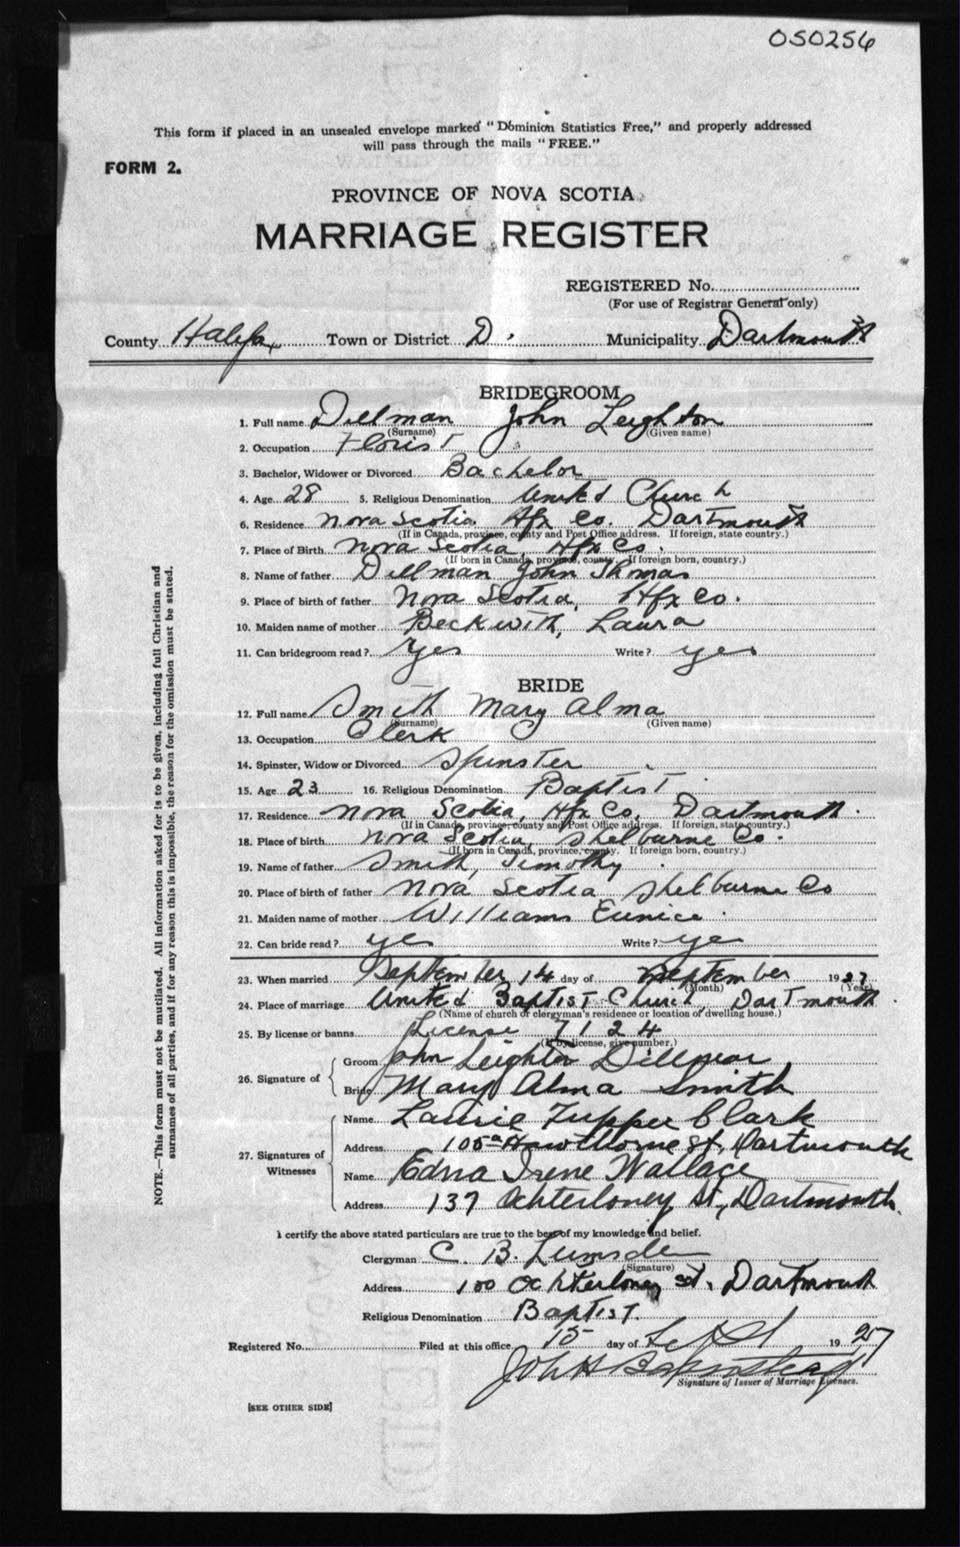 050256
This form if placed in an unsealed envelope marked "Dominion Statistics Free," and properly addressed
will pass through the mails "FREE."
FORM 2.
PROVINCE OF NOVA SCOTIA
MARRIAGE REGISTER
REGISTERED No.
(For use of Registrar General only)
County Halifax Town or District D. Municipality Dartmouth
BRIDEGROOM
1. Full name Dillman John Leighton
(Surname) (Given name)
2. Occupation Florist
3. Bachelor, Widower or Divorced Bachelor
4. Age 28 5. Religious Denomination United Church
6. Residence Nova Scotia Hfx Co. Dartmouth
(If in Canada, province, county and Post Office address. If foreign, state country.)
7. Place of Birth Nova Scotia, Hfx Co.
(If born in Canada, province, county. If foreign born, country.)
8. Name of father Dillman John Thomas
9. Place of birth of father Nova Scotia, Hfx Co.
10. Maiden name of mother Beckwith, Laura
11. Can bridegroom read? Yes Write? yes
BRIDE
12. Full name Smith Mary Alma
(Surname) (Given name)
13. Occupation Clerk
14. Spinster, Widow or Divorced Spinster
15. Age 23 16. Religious Denomination Baptist
17. Residence Nova Scotia, Hfx Co, Dartmouth.
(If in Canada, province, county and Post Office address. If foreign, state country.)
18. Place of birth Nova Scotia, Shelburne Co.
(If born in Canada, province, county. If foreign born, country.)
19. Name of father Smith, Timothy
20. Place of birth of father Nova Scotia Shelburne Co
21. Maiden name of mother Williams Eunice
22. Can bride read? yes Write? yes
23. When married September 14 day of September 1927
(Month) (Year)
24. Place of marriage United Baptist Church, Dartmouth
(Name of church or clergyman's residence or location of dwelling house.)
25. By license or banns License 7124
(If by license, give number.)
26. Signature of Groom John Leighton Dillman
Bride Mary Alma Smith
27. Signatures of Witnesses Name Laurie Tupper Clark
Address 105a Hawthorne St, Dartmouth
Name Edna Irene Wallace
Address 137 Ochterloney St., Dartmouth.
I certify the above stated particulars are true to the best of my knowledge and belief.
Clergyman C. B. Lumsden
(Signature)
Address 100 Ochterloney St. Dartmouth
Religious Denomination Baptist.
Registered No. Filed at this office 15 day of Sept 1927
Signature of Issuer of Marriage Licenses.
[SEE OTHER SIDE]
NOTE.—This form must not be mutilated. All information asked for is to be given, including full Christian and
surnames of all parties, and if for any reason this is impossible, the reason for the omission must be stated.